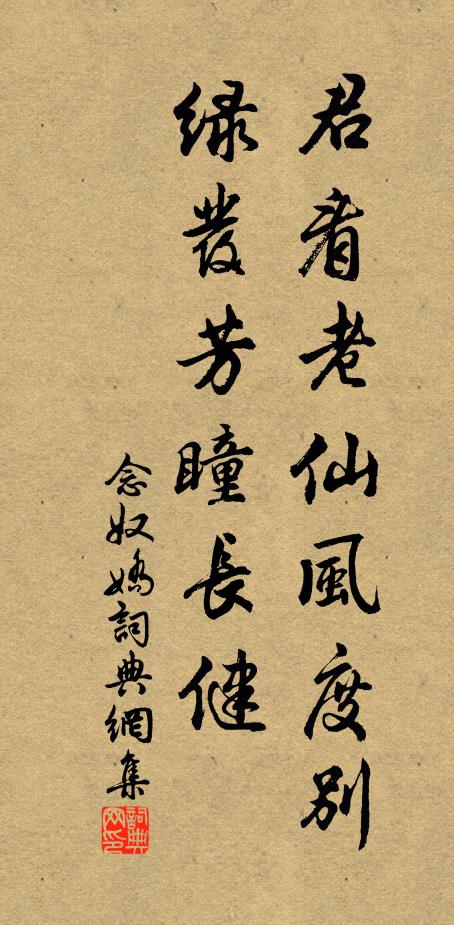 君看老仙風度別
綠發芳瞳長健
念奴嬌詞典網集
詞典网印